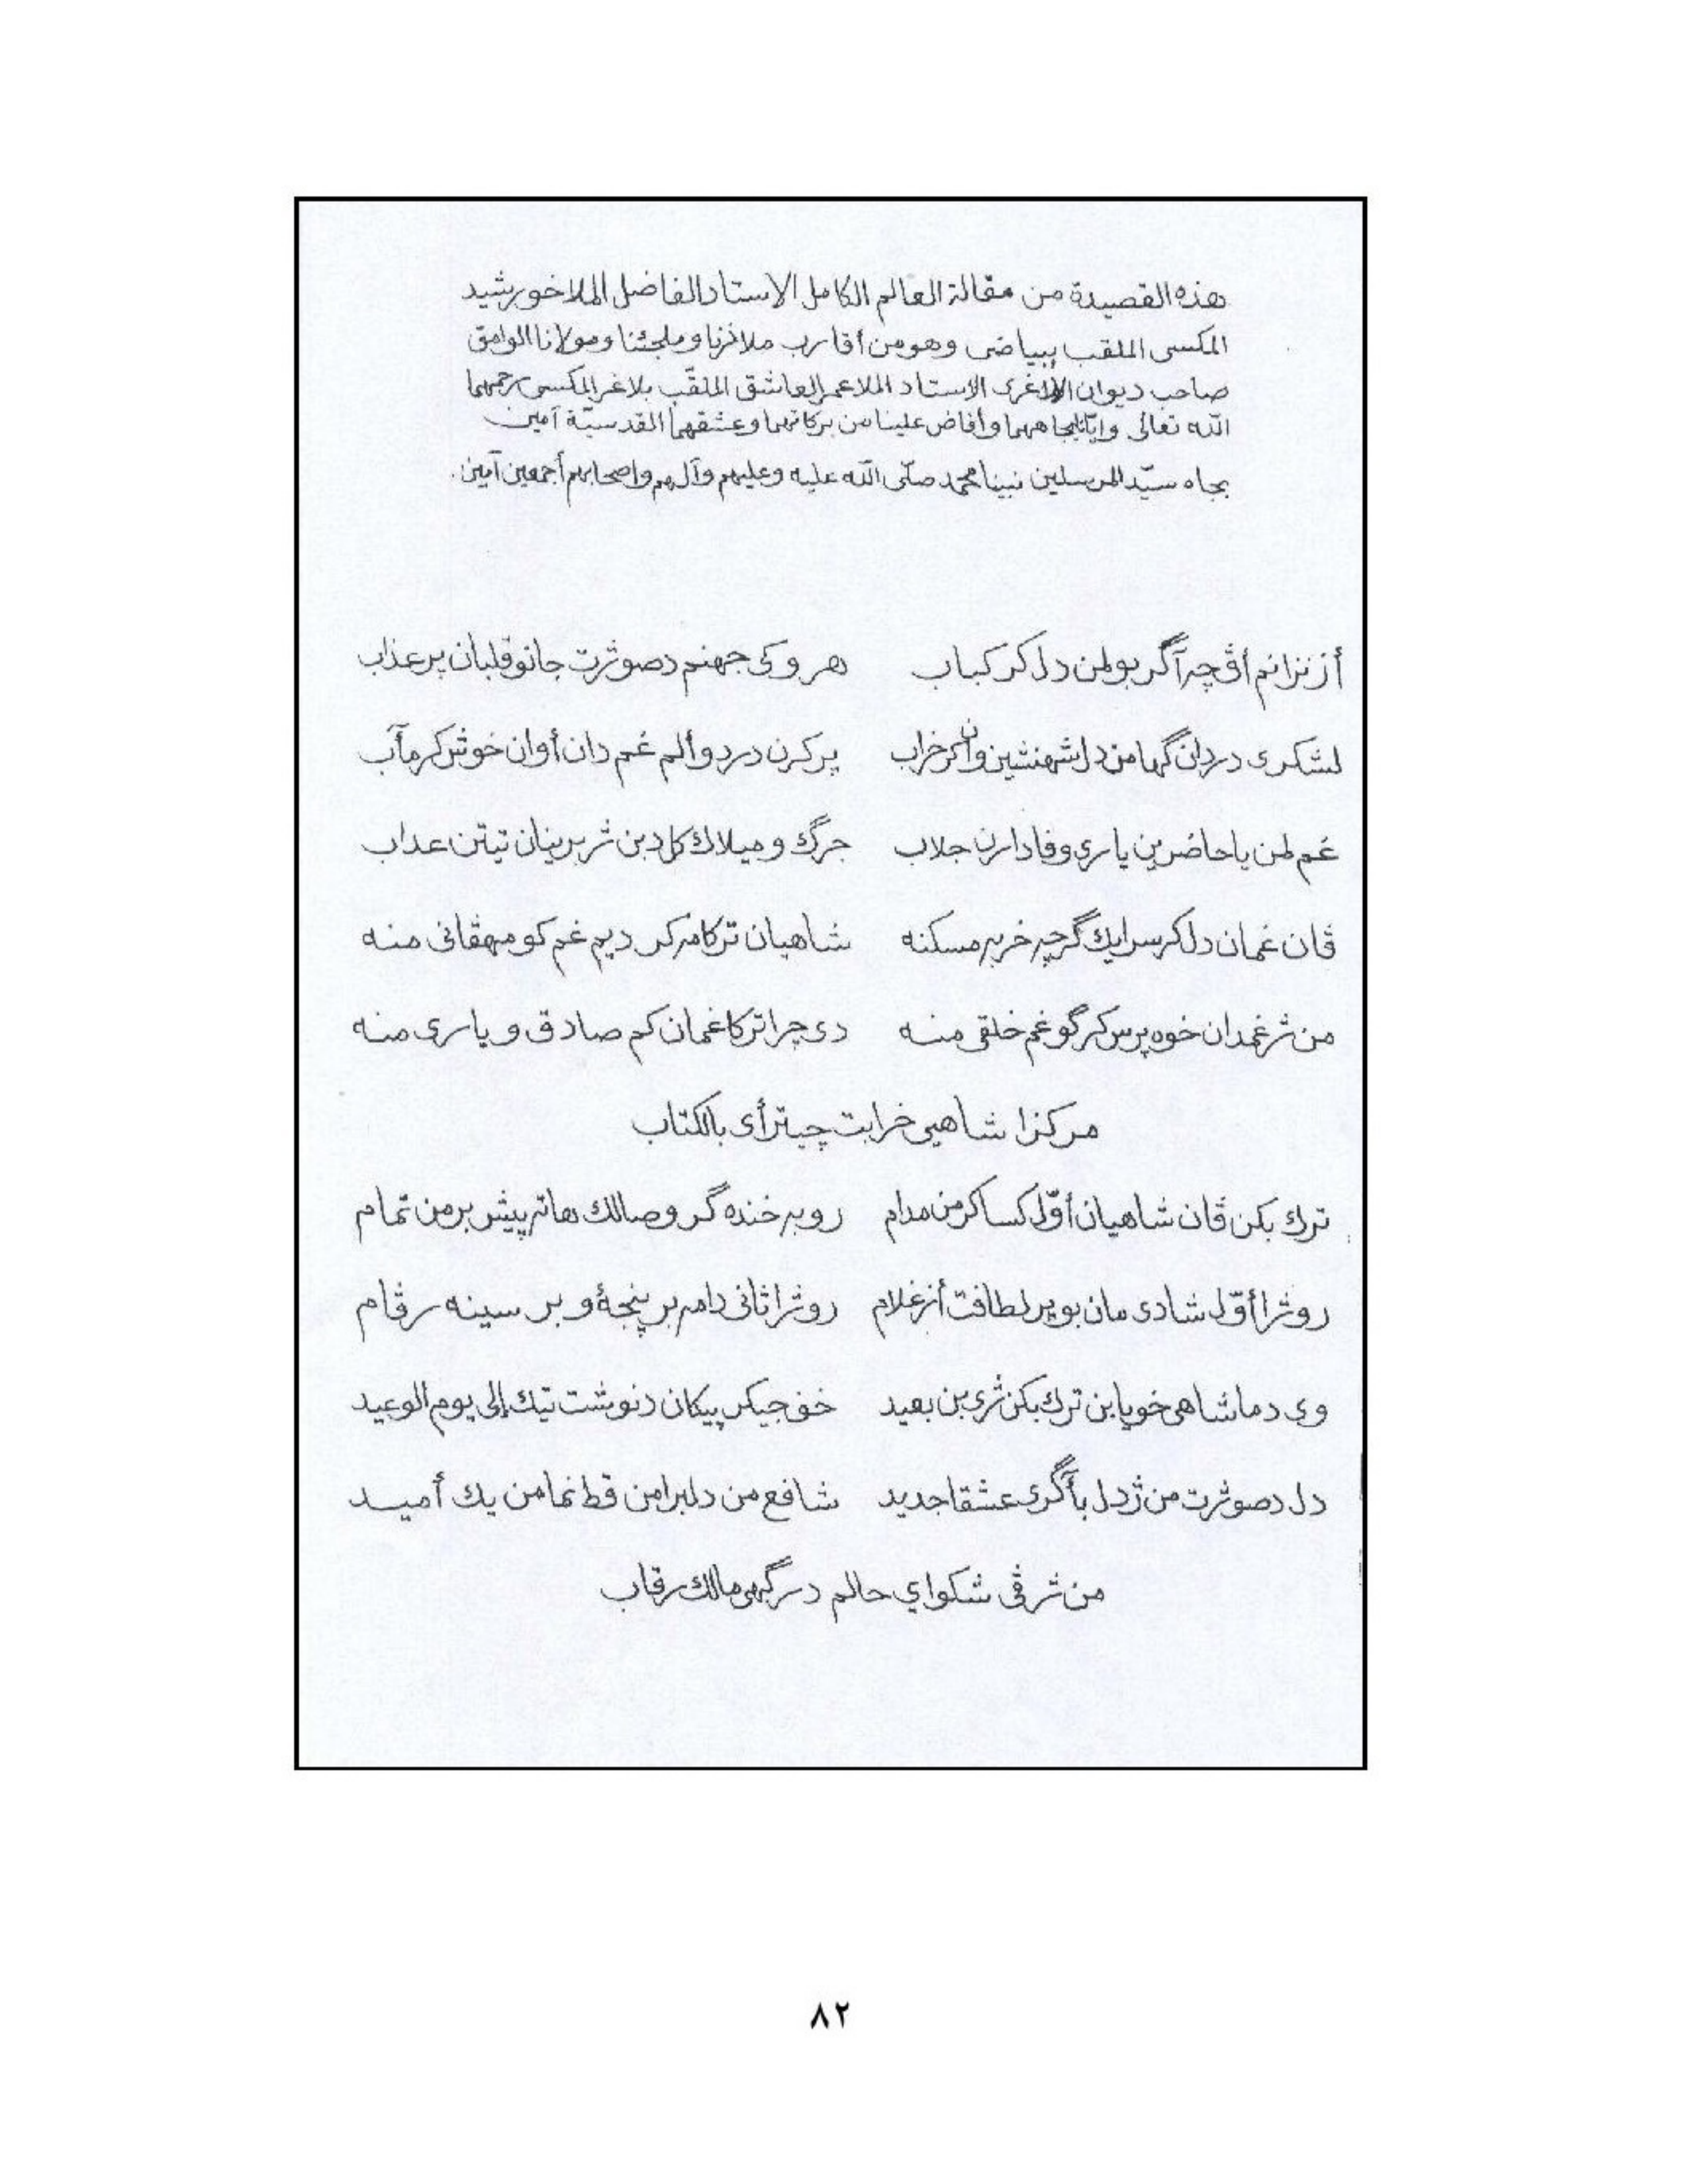 هذه القصيدة من مقالة العالم الكامل الاستاد الفاضل الملا خورشيد
المكسى الملقب ببياضى وهو من أقارب ملاذنا وملجئنا ومولانا الوامق
صاحب ديوان الاغرى الاستاد الملا عمر العاشق الملقّب بلاغر المكسى رحمهما
الله تعالى وإيّانا بجاههما وأفاض علينا من بركاتهما وعشقهما القدسيّة آمين
بجاه سيّد المرسلين نبينا محمد صلّى الله عليه وعليهم وآلهم واصحابهم أجمعين آمين.
أز نزانم أڤ چ آگر بو لمن دل كر كباب هر وكى جهنم دصوژت جان وقلبان پر عذاب
لشكرى دردان گها من دل شهنشين وان كر خراب پر كرن درد وألم غم دان أوان خوش كر مآب
غم لمن يا حاضرين يارى وفادارن جلاب جرگ وميلاك كل دبن ژ بريان تيتن عداب
ڤان غمان دل كر سرايك گرچه خربه مسكنه شاهيان تركا مه كر ديم غم كو مهڤانى منه
من ژ غمدان خوه پرس كر گو غم خلقى منه دى چرا تركا غمان كم صادق و يارى منه
مركزا شاهيى خرابت چيتر أى بالكتاب
ترك بكن ڤان شاهيان أوّل كسا كر من مدام رو به خنده گر وصالك هاته پيش بر من تمام
روژا أوّل شادى مان بو پر لطافت أز غلام روژا ثانى دامه بر پنجهٔ و بر سينه رڤام
وى دما شاهى خويا بن ترك بكن ژى بن بعيد خف جيكر پيكان دنوشت تيك إلى يوم الوعيد
دل دصوژت من ژ دل بآگرى عشقا جديد شافع من دلبرا من قط نما من يك أميد
من ژ ڤى شكواي حالم درگهى مالك رقاب
٨٢